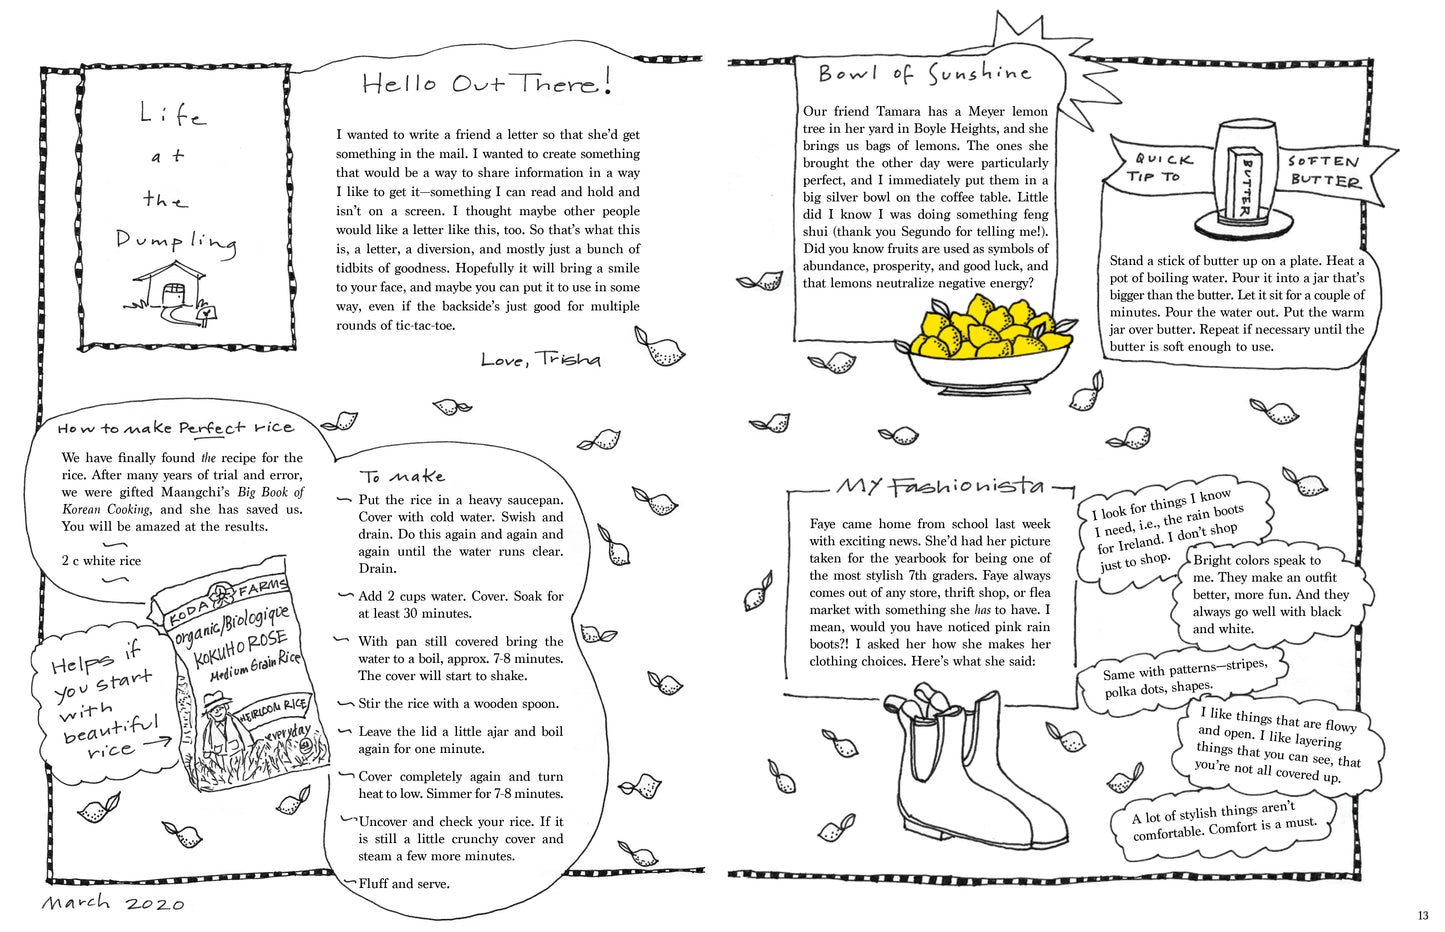 Life
at
the
Dumpling
Hello Out There!
I wanted to write a friend a letter so that she'd get
something in the mail. I wanted to create something
that would be a way to share information in a way
I like to get it—something I can read and hold and
isn't on a screen. I thought maybe other people
would like a letter like this, too. So that's what this
is, a letter, a diversion, and mostly just a bunch of
tidbits of goodness. Hopefully it will bring a smile
to your face, and maybe you can put it to use in some
way, even if the backside's just good for multiple
rounds of tic-tac-toe.
Love, Trisha
How to make Perfect rice
We have finally found the recipe for the
rice. After many years of trial and error,
we were gifted Maangchi's Big Book of
Korean Cooking, and she has saved us.
You will be amazed at the results.
2 c white rice
Helps if
you start
with
beautiful
rice
KODA FARMS
organic/Biologique
KOKUHO ROSE
Medium Grain Rice
HEIRLOOM RICE
everyday
To make
Put the rice in a heavy saucepan.
Cover with cold water. Swish and
drain. Do this again and again and
again until the water runs clear.
Drain.
Add 2 cups water. Cover. Soak for
at least 30 minutes.
With pan still covered bring the
water to a boil, approx. 7-8 minutes.
The cover will start to shake.
Stir the rice with a wooden spoon.
Leave the lid a little ajar and boil
again for one minute.
Cover completely again and turn
heat to low. Simmer for 7-8 minutes.
Uncover and check your rice. If it
is still a little crunchy cover and
steam a few more minutes.
Fluff and serve.
March 2020
Bowl of Sunshine
Our friend Tamara has a Meyer lemon
tree in her yard in Boyle Heights, and she
brings us bags of lemons. The ones she
brought the other day were particularly
perfect, and I immediately put them in a
big silver bowl on the coffee table. Little
did I know I was doing something feng
shui (thank you Segundo for telling me!).
Did you know fruits are used as symbols of
abundance, prosperity, and good luck, and
that lemons neutralize negative energy?
QUICK
TIP TO
SOFTEN
BUTTER
BUTTER
Stand a stick of butter up on a plate. Heat a
pot of boiling water. Pour it into a jar that's
bigger than the butter. Let it sit for a couple of
minutes. Pour the water out. Put the warm
jar over butter. Repeat if necessary until the
butter is soft enough to use.
My Fashionista
Faye came home from school last week
with exciting news. She'd had her picture
taken for the yearbook for being one of
the most stylish 7th graders. Faye always
comes out of any store, thrift shop, or flea
market with something she has to have. I
mean, would you have noticed pink rain
boots?! I asked her how she makes her
clothing choices. Here's what she said:
I look for things I know
I need, i.e., the rain boots
for Ireland. I don't shop
just to shop.
Bright colors speak to
me. They make an outfit
better, more fun. And they
always go well with black
and white.
Same with patterns—stripes,
polka dots, shapes.
I like things that are flowy
and open. I like layering
things that you can see, that
you're not all covered up.
A lot of stylish things aren't
comfortable. Comfort is a must.
13